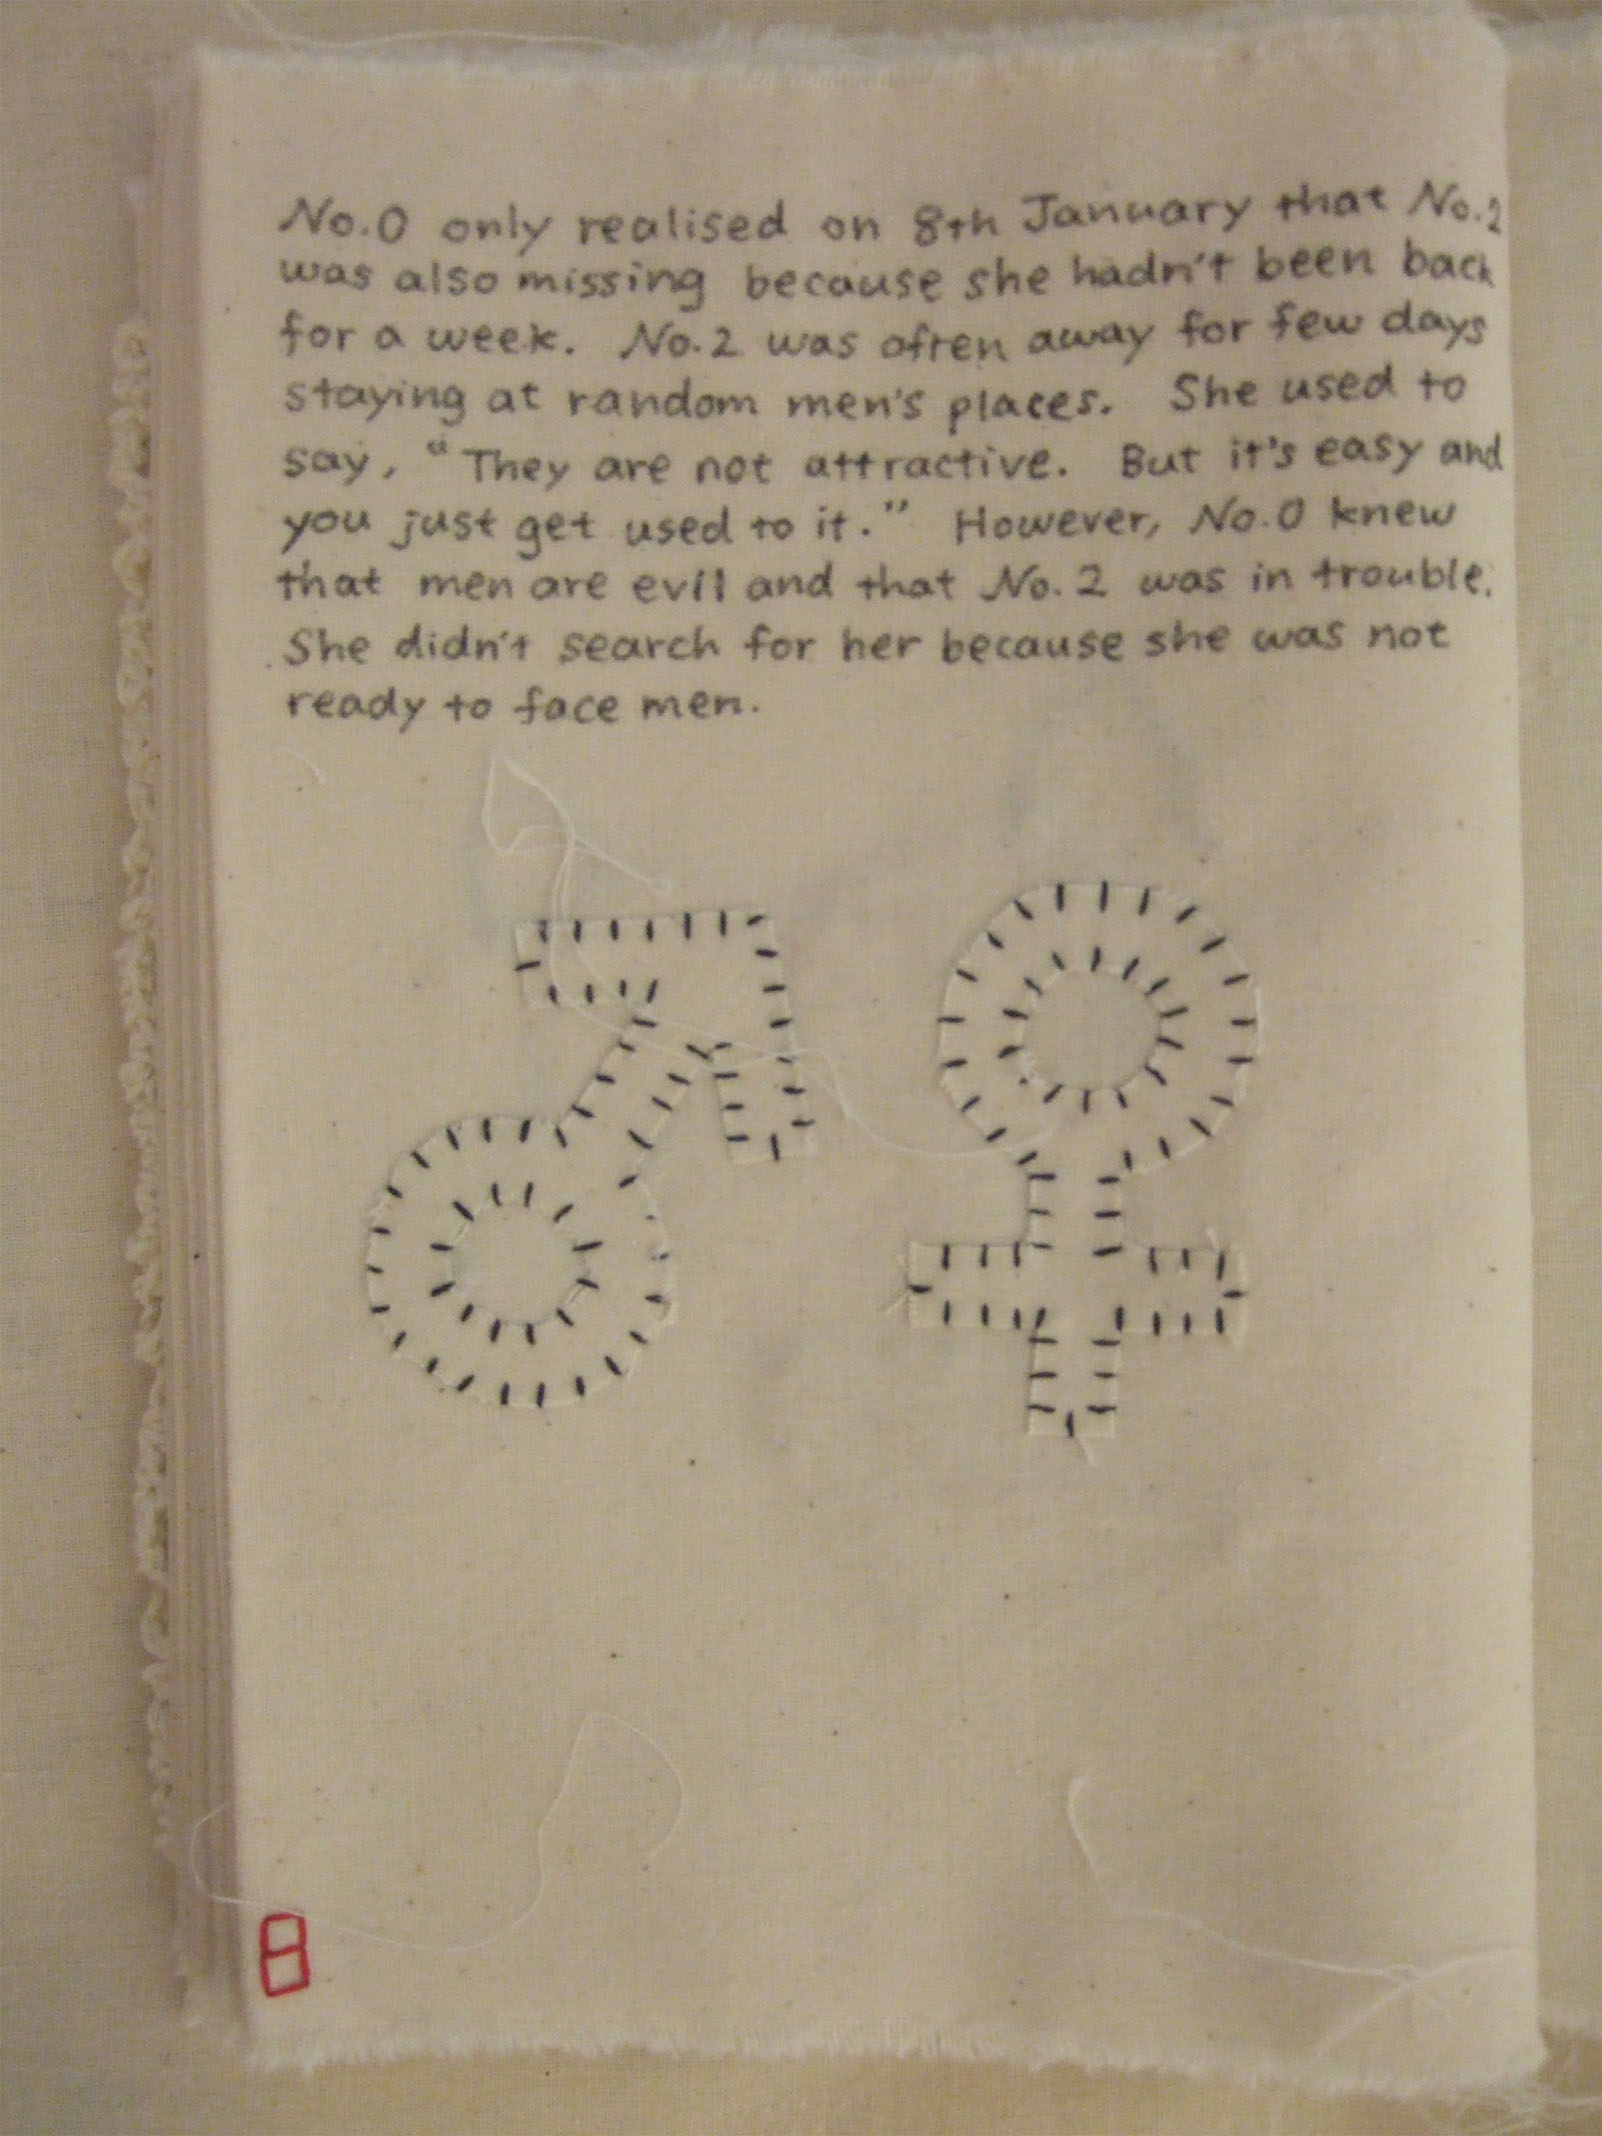 No.0 only realised on 8th January that No.2
was also missing because she hadn't been back
for a week. No.2 was often away for few days
staying at random men's places. She used to
say, "They are not attractive. But it's easy and
you just get used to it." However, No.0 knew
that men are evil and that No.2 was in trouble.
She didn't search for her because she was not
ready to face men.
8